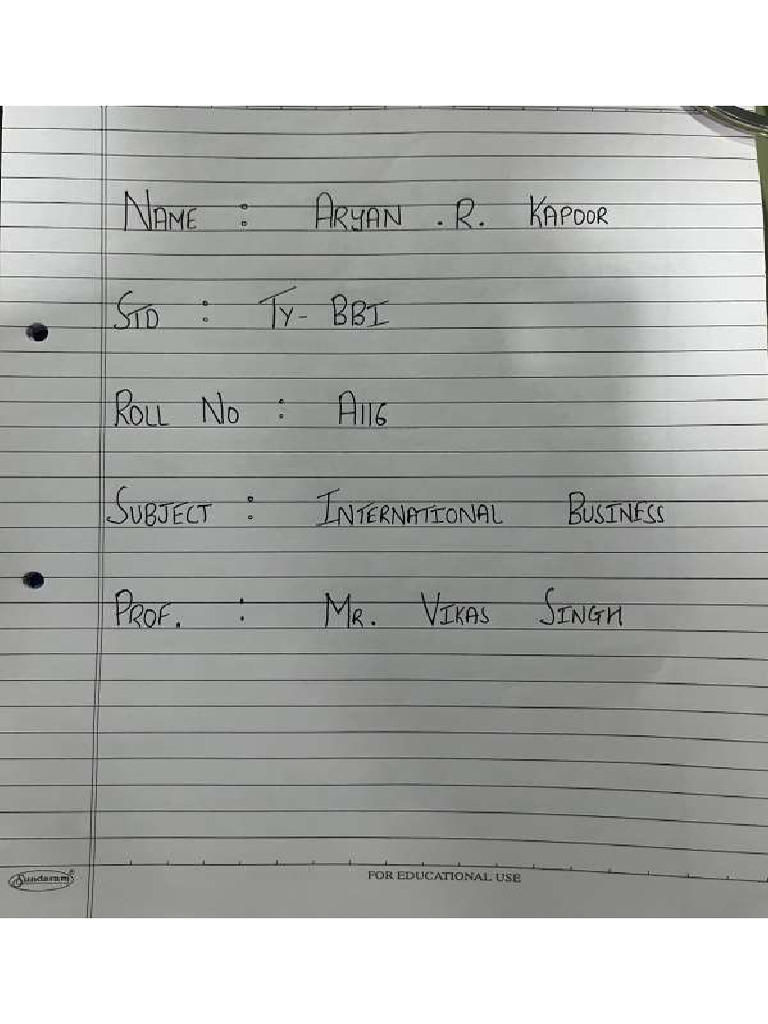 NAME : ARYAN . R. KAPOOR
STD : TY - BBI
ROLL NO : A116
SUBJECT : INTERNATIONAL BUSINESS
PROF. : MR. VIKAS SINGH
Sundaram
FOR EDUCATIONAL USE